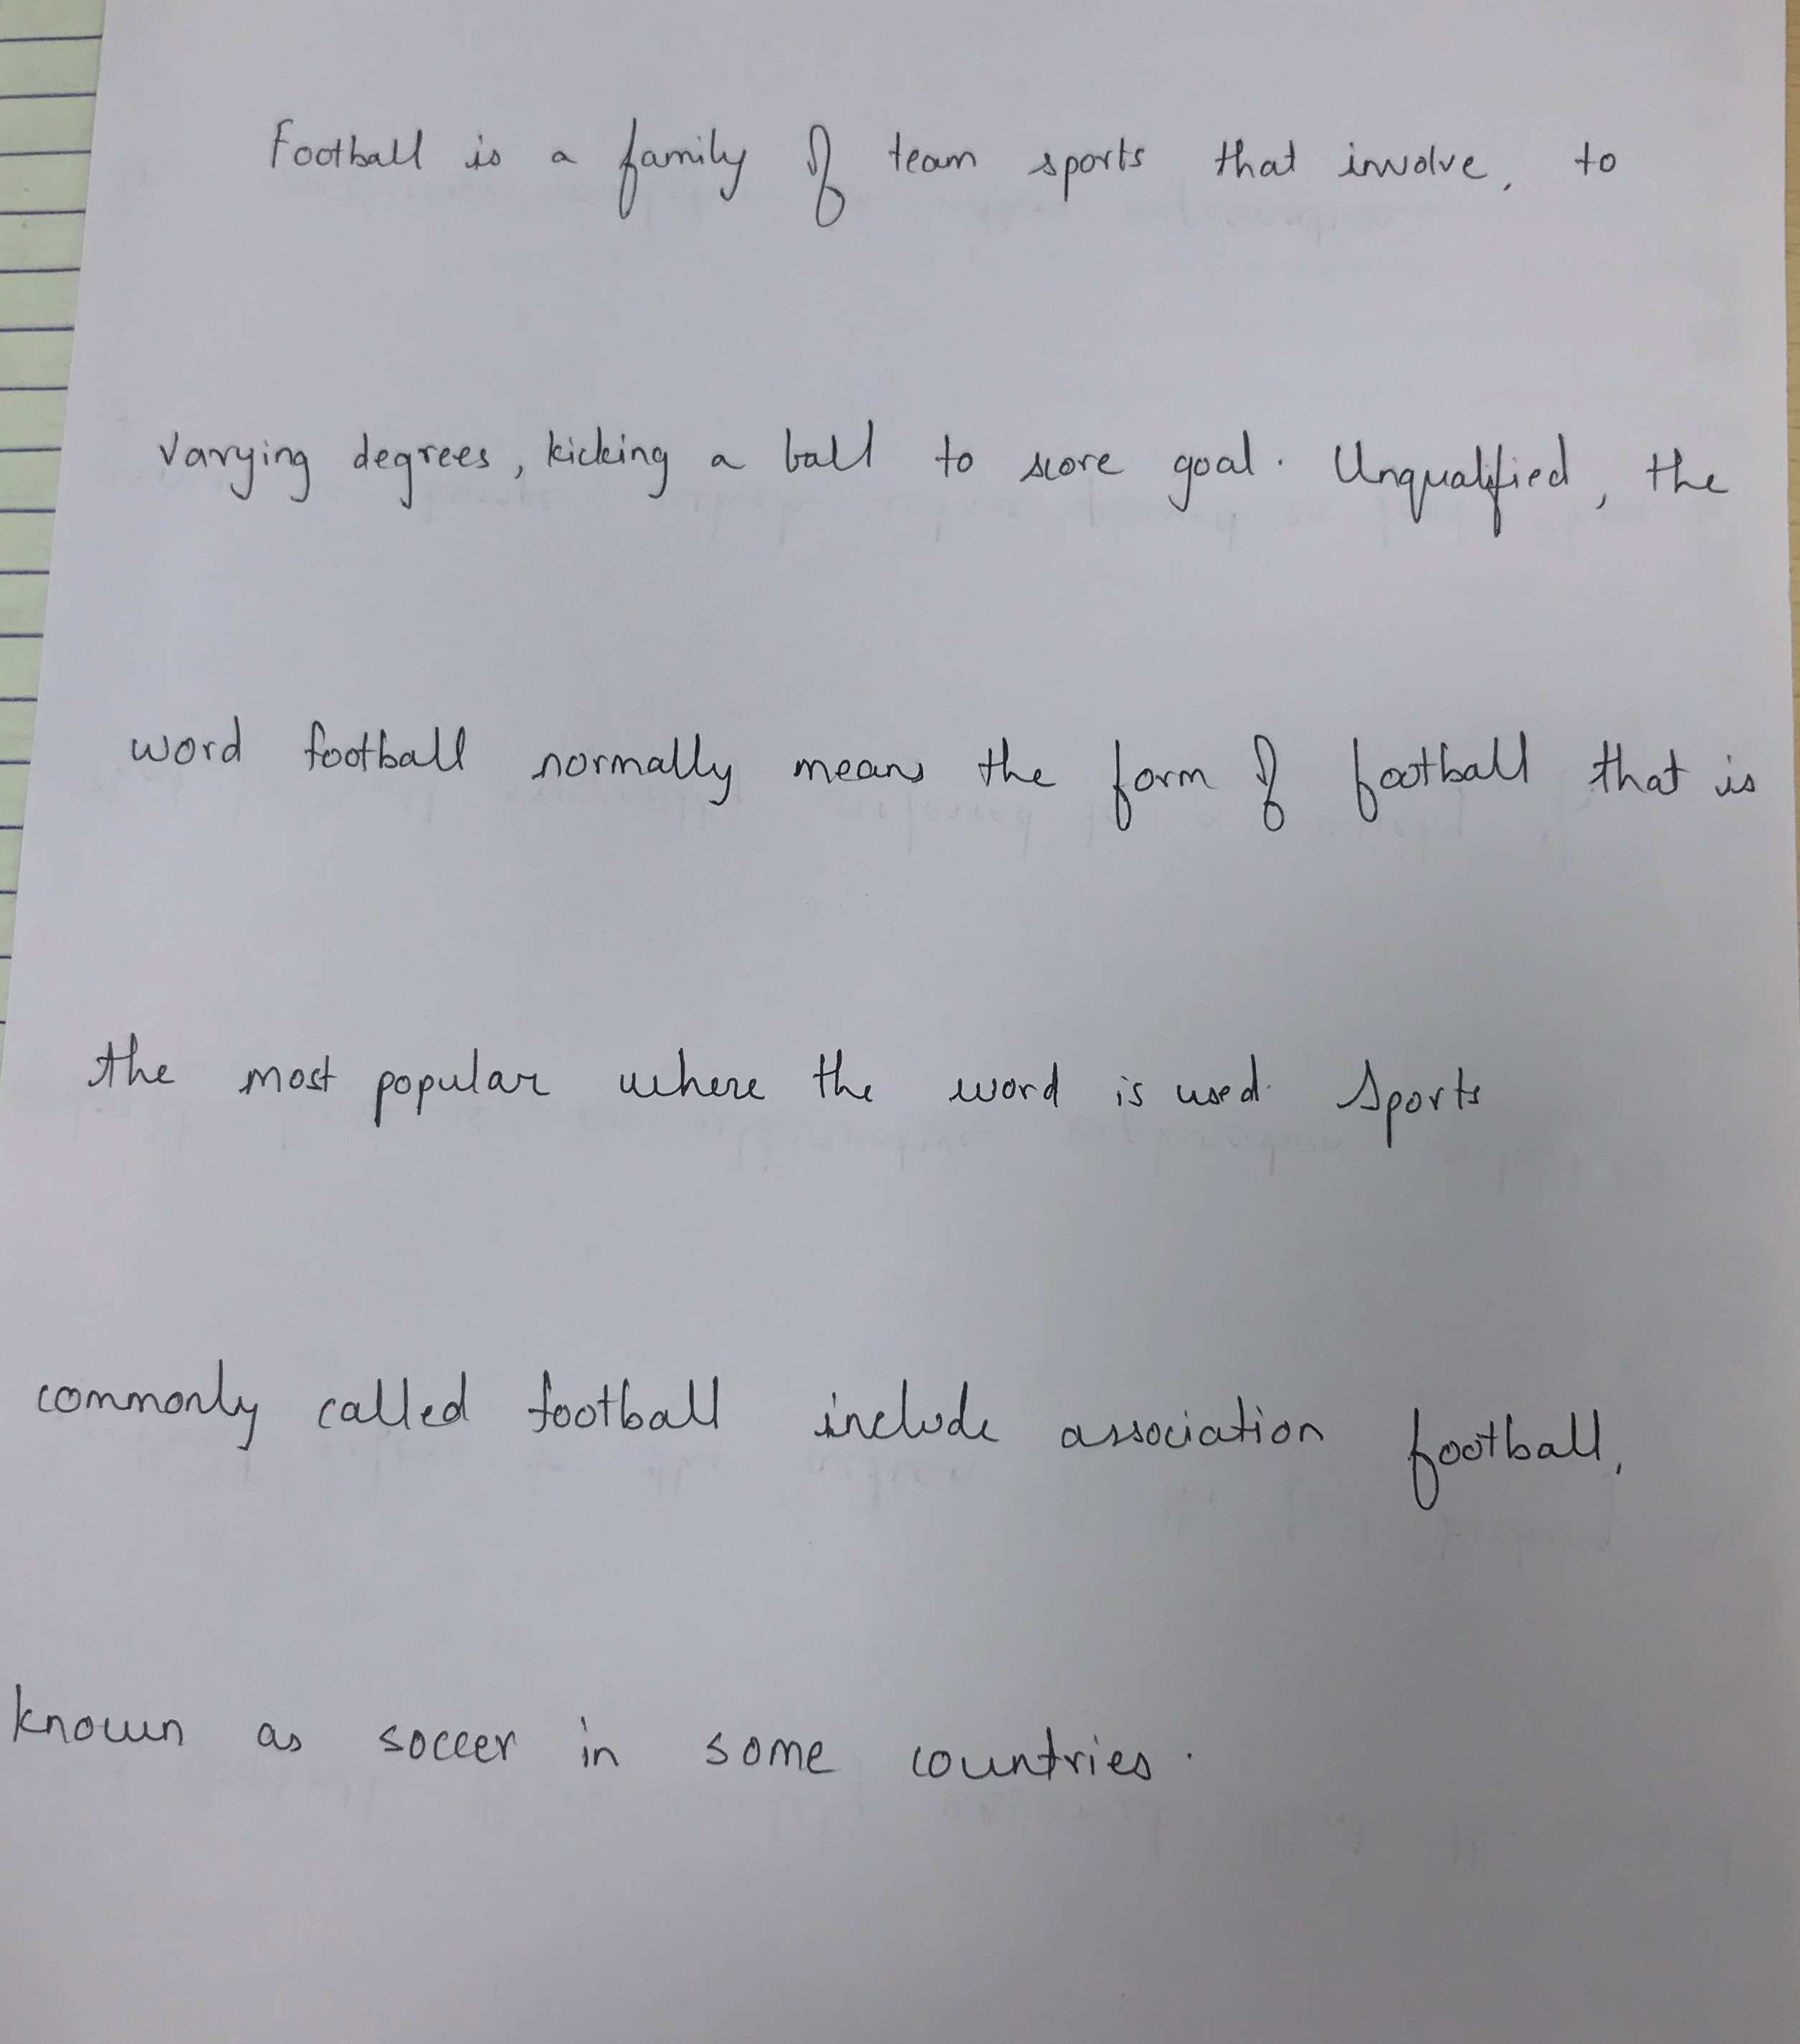 Football is a family of team sports that involve, to
varying degrees, kicking a ball to score goal. Unqualified, the
word football normally means the form of football that is
the most popular where the word is used. Sports
commonly called football include association football,
known as soccer in some countries.